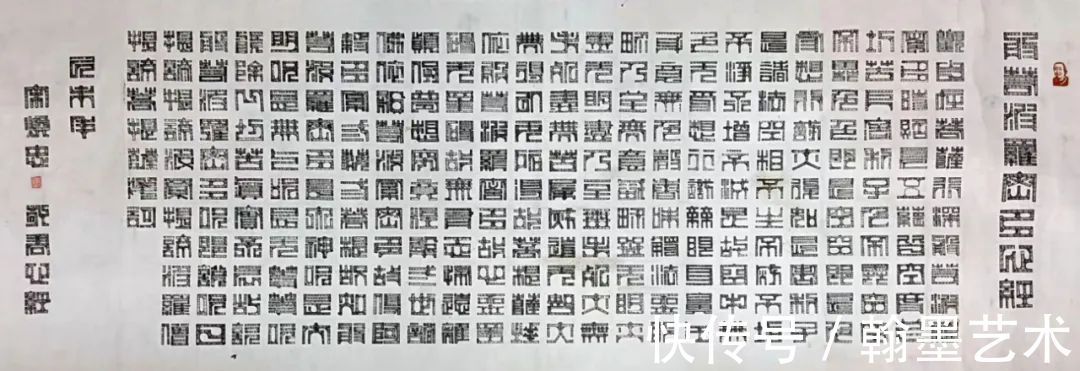 般若波羅密多心經
觀自在菩薩行深般若波羅
密多時照見五蘊皆空度一
切苦厄舍利子色不異空空
不異色色即是空空即是色
受想行識亦復如是舍利子
是諸法空相不生不滅不垢
不淨不增不減是故空中無
色無受想行識無眼耳鼻舌
身意無色聲香味觸法無眼
界乃至無意識界無無明亦
無無明盡乃至無老死亦無
老死盡無苦集滅道無智亦
無得以無所得故菩提薩埵
依般若波羅密多故心無罣
礙無罣礙故無有恐怖遠離
顛倒夢想究竟涅槃三世諸
佛依般若波羅密多故得阿
耨多羅三藐三菩提故知般
若波羅密多是大神呪是大
明呪是無上呪是無等等呪
能除一切苦真實不虛故說
般若波羅密多呪即說呪曰
揭諦揭諦波羅揭諦波羅僧
揭諦菩提薩婆訶
未年
敬書心經
快传号 / 翰墨艺术